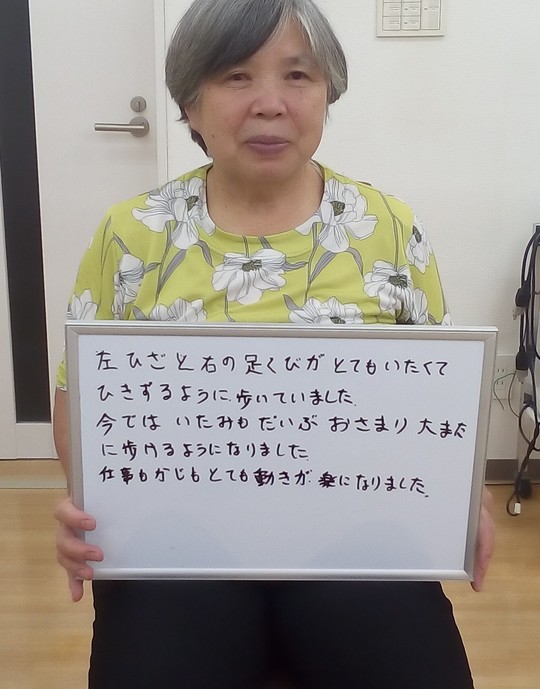 左ひざと右の足くびがとてもいたくて
ひきずるように歩いていました。
今ではいたみもだいぶおさまり大また
に歩けるようになりました
仕事もかじもとても動きが楽になりました。